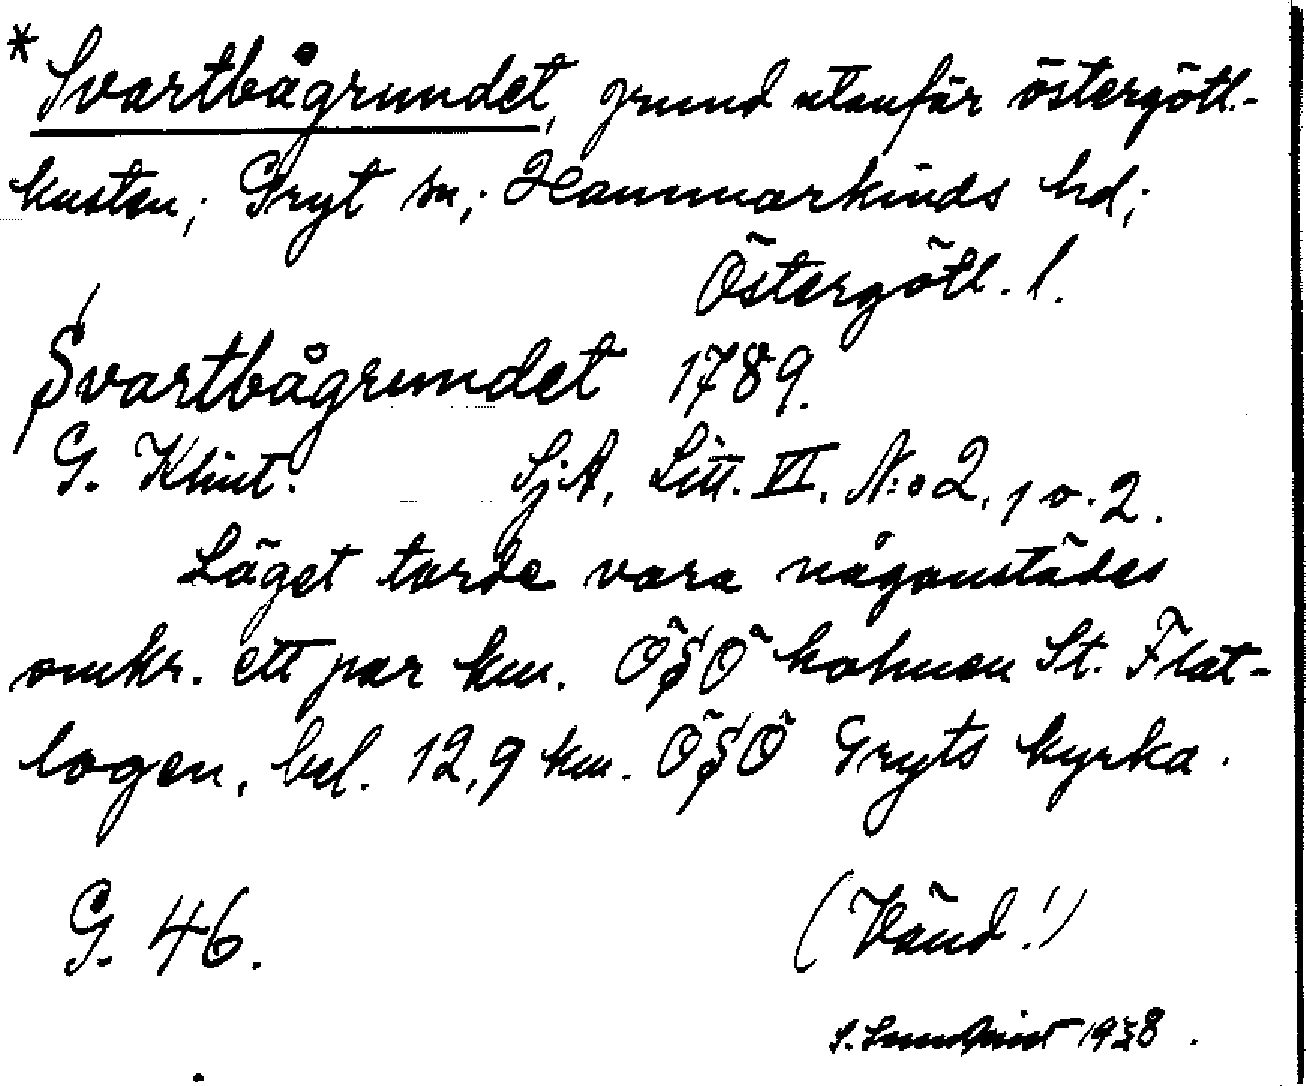 * Svartbågrundet, grund utanför östergötl.-
kusten; Gryt sn; Hammarkinds hd;
Östergötl. l.
Svartbågrundet 1789.
G. Klint. SjA, Litt. VI. N:o 2, 1 o. 2.
Läget torde vara någonstädes
omkr. ett par km. ÖSÖ holmen St. Flat-
logen, bel. 12,9 km. ÖSÖ Gryts kyrka.
G. 46. (Vänd!)
S. Lundkvist 1938.